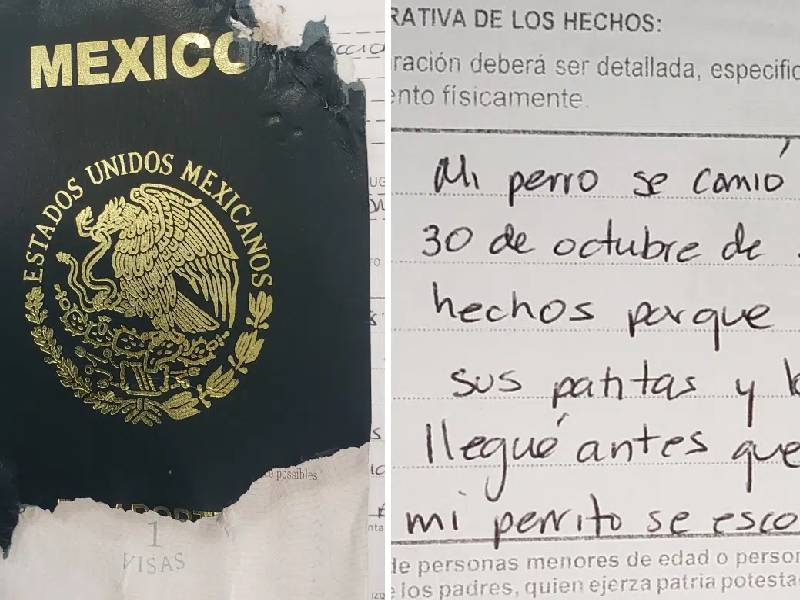 MEXICO
ESTADOS UNIDOS MEXICANOS
1
VISAS
posibles
RATIVA DE LOS HECHOS:
ración deberá ser detallada, especific
ento físicamente.
Mi perro se comió
30 de octubre de
hechos porque
sus patitas y
llegué antes que
mi perrito se esco
de personas menores de edad o person
los padres, quien ejerza patria potesta